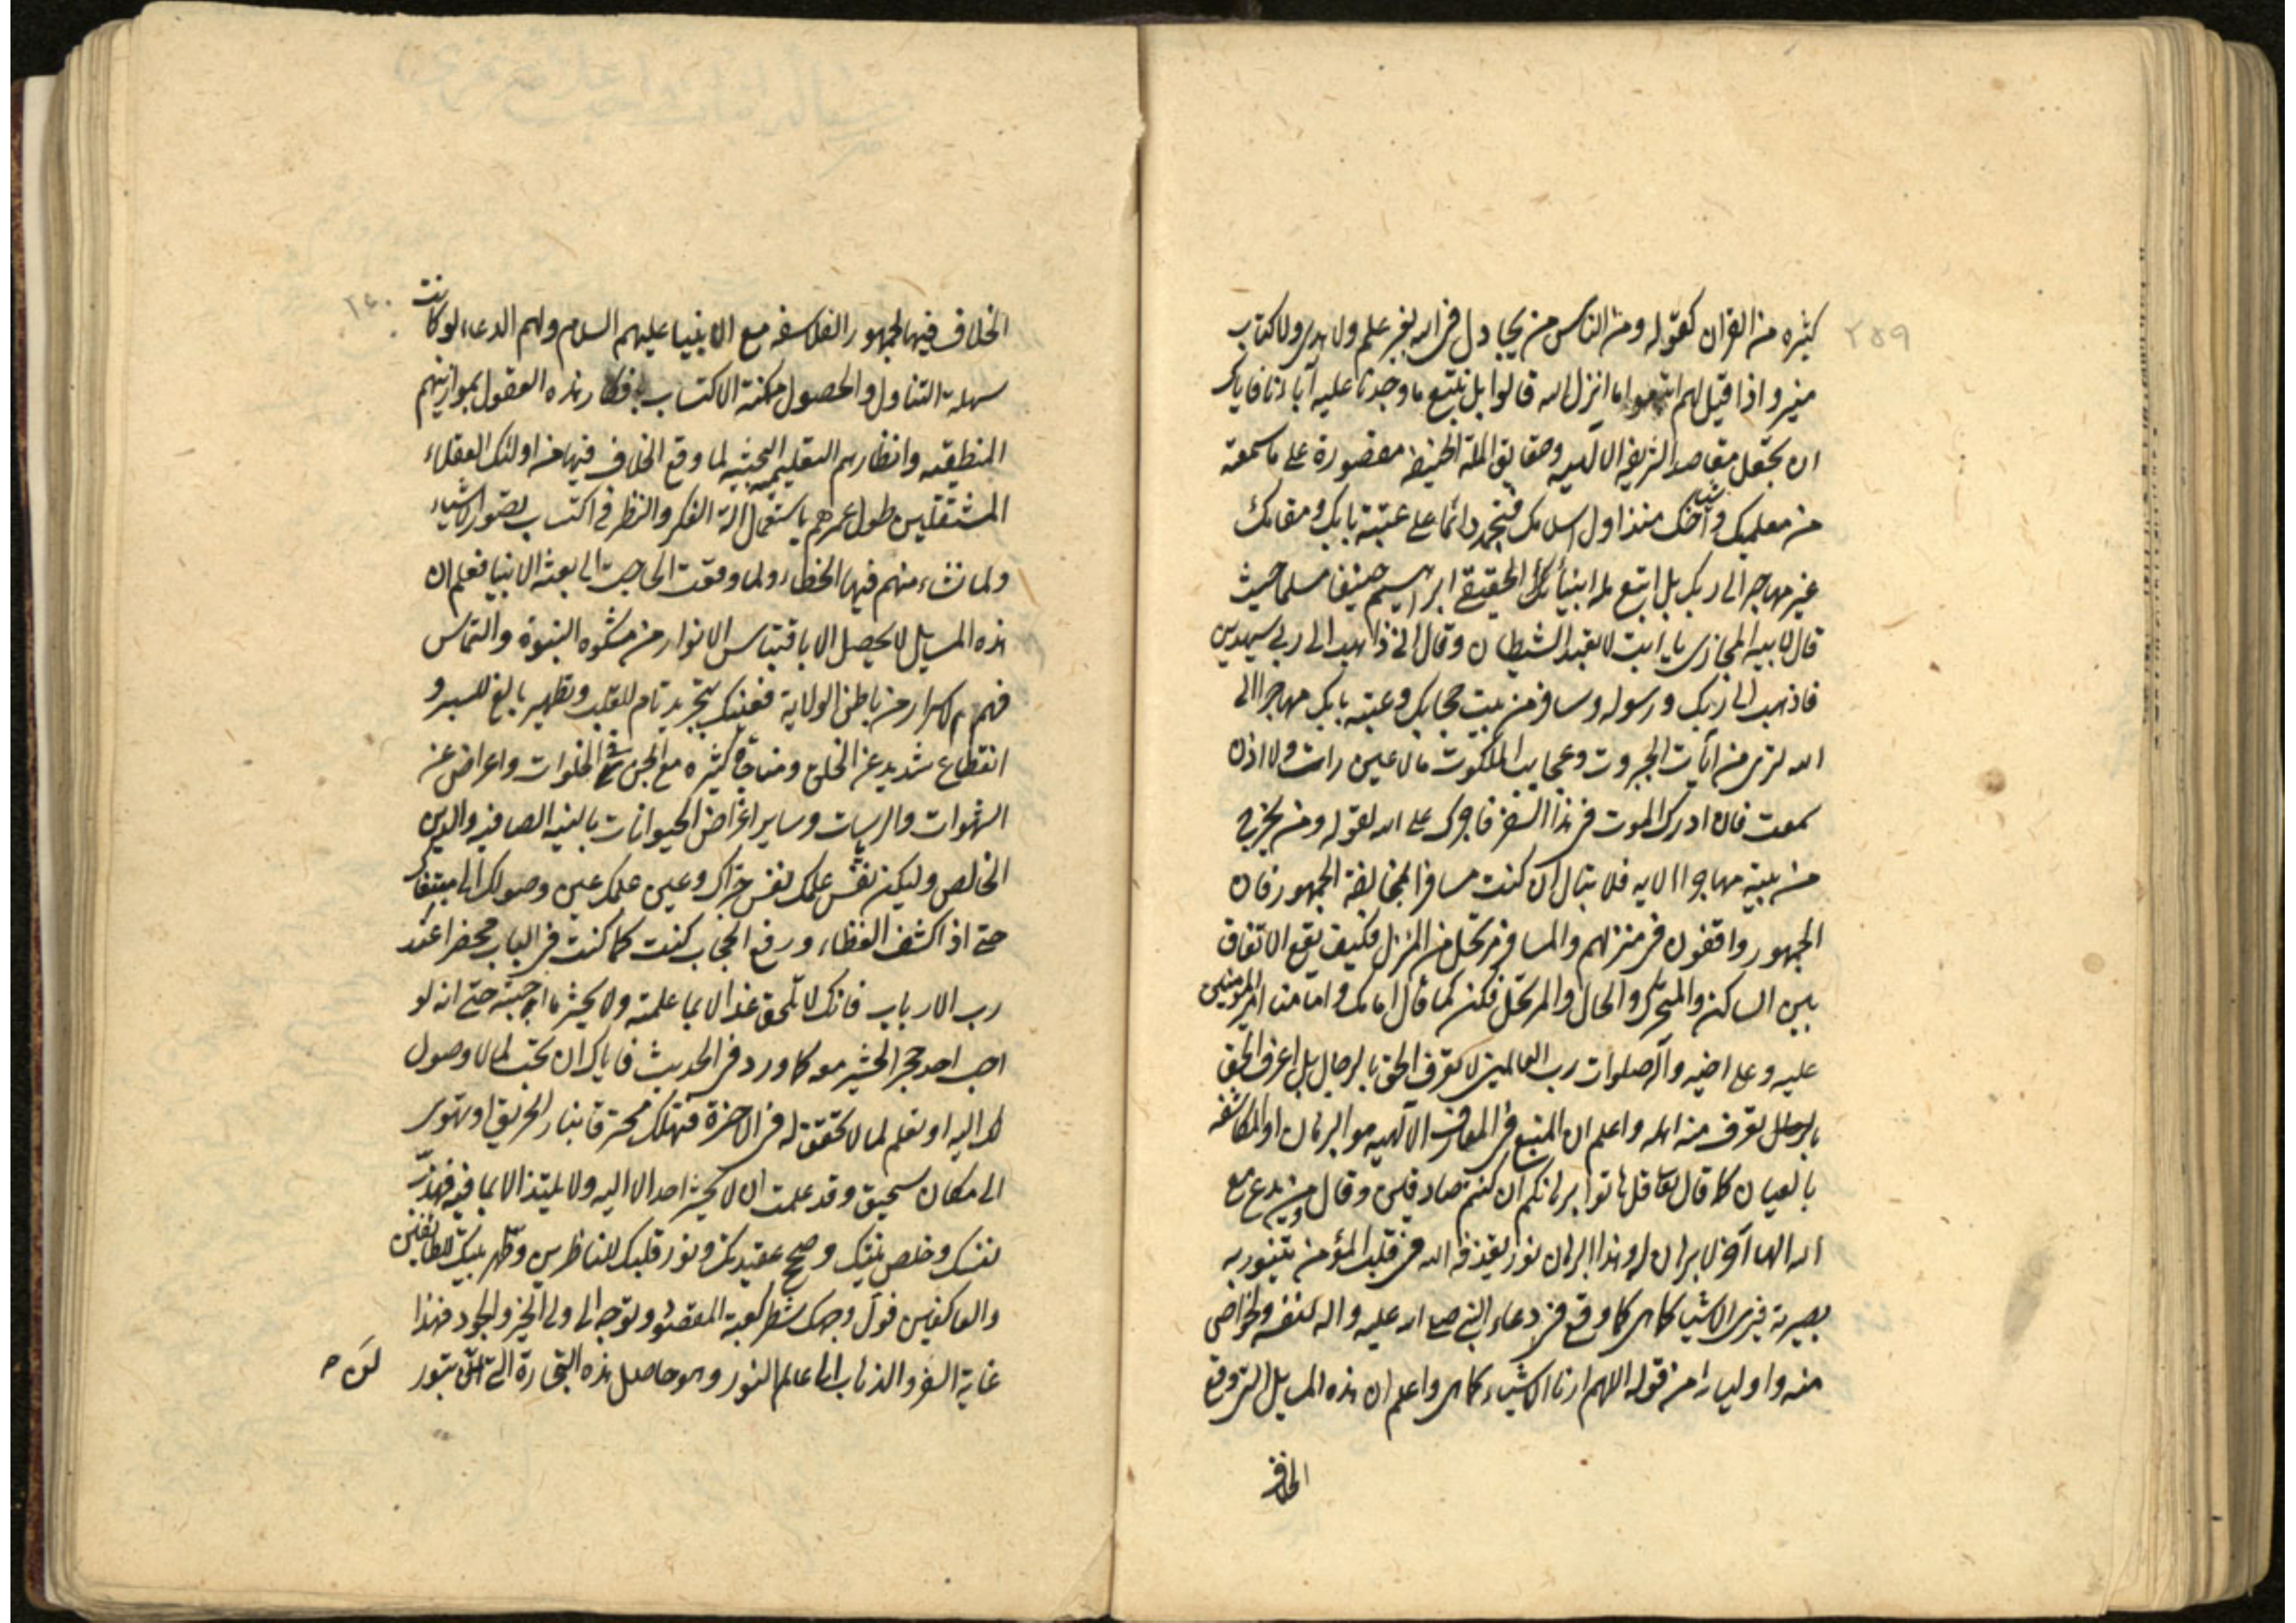 ٢٥٩
كثيره من القران كقوله ومن الناس من يجادل فى الله بغير علم ولا هدى ولا كتاب
منير واذا قيل لهم اتبعوا ما انزل الله قالوا بل نتبع ما وجدنا عليه آباءنا فاياك
ان تجعل مقاصد الشريعة الالهيه وحقايق الملة الحنيفه مقصورة على ما سمعته
من معلميك واشياخك منذ اول اسلامك فتجمد دائما على عتبة بابك ومقامك
غير مهاجر الى ربك بل اتبع ملة ابيك الحقيقى ابراهيم حنيفا مسلما حيث
قال لابيه المجازى يا ابت لا تعبد الشيطان وقال انى ذاهب الى ربى سيهدين
فاذهب الى ربك ورسوله وسافر من بيت حجابك وعتبة بابك مهاجرا الى
الله لترى من آيات الجبروت وعجايب الملكوت ما لا عين رات ولا اذن
سمعت فان ادرك الموت فى هذا السفر فاجرك على الله لقوله ومن يخرج
من بيته مهاجرا الايه فلا تبال ان كنت مسافرا لمخالفة الجمهور فان
الجمهور واقفون فى منزلهم والمسافر مرتحل من المنزل فكيف يقع الاتفاق
بين الساكن والمتحرك والحال والمرتحل فكن كما قال امامك وامامنا امير المؤمنين
عليه وعلى اخيه وآله صلوات رب العالمين لا تعرف الحق بالرجال بل اعرف الحق
بالرجال تعرف منه اهله واعلم ان المتبع فى المعارف الآلهيه هو البرهان او المكاشفه
بالعيان كما قال تعالى قل هاتوا برهانكم ان كنتم صادقين وقال ومن يدع مع
الله الها آخر لا برهان له وهذا البرهان نور يقذفه الله فى قلب المؤمن يتنور به
بصيرته فيرى الاشيا كما هى كما وقع فى دعاء النبى صلى الله عليه واله لنفسه ولخواص
منه واوليائه من قوله اللهم ارنا الاشياء كما هى واعلم ان هذه المسايل التى وقع
الخلاف
٢٤٠
الخلاف فيها لجمهور الفلاسفه مع الانبيا عليهم السلام ولهم الدعاء لو كانت
سهلة التناول والحصول ممكنة الاكتساب بافكار هذه العقول بموازينهم
المنطقيه وانظارهم التعليميه البحثيه لما وقع الخلاف فيها من اولئك العقلاء
المشتغلين طول عمرهم باستعمال الة الفكر والنظر فى اكتساب تصور الاشياء
ولما نشاء منهم فيها الخطاء ولما وقعت الحاجة الى بعثة الانبيا فعلم ان
هذه المسايل لا يحصل الا باقتباس الانوار من مشكوه النبوة والتماس
فهم الاسرار من باطن الولاية فعليك بتجريد تام للقلب وتطهير بالغ للسر و
انقطاع شديد عن الخلق ومناجاة كثيره مع الحق فى الخلوات واعراض عن
الشهوات والرياسات وساير اغراض الحيوانات بالنيه الصافيه والدين
الخالص وليكن نفس عملك نفس جزاك وعين علمك عين وصولك الى مبتغاك
حتى اذا كشف الغطاء ورفع الحجاب كنت كما كنت فى الباب محضرا عند
رب الارباب فانك لا تلحق غدا الا بما علمته ولا يحشر ما احببته حتى انه لو
احب احد حجرا لحشر معه كما ورد فى الحديث فاياك ان تحب لما لا وصول
لك اليه او تعلم لما لا تحقق له فى الاخرة فتهلك محترقا بنار الحريق او تهوى
الى مكان سحيق وقد علمت ان لا يحشر احد الا اليه ولا يلتذ الا بما فيه فهذب
نفسك وخلص نيتك وصحح عقيدتك ونور قلبك للناظرين وطهر بيتك للطائفين
والعاكفين فول وجهك شطر كعبة المقصود وتوجه الى ولى الخير والجود فهذا
غاية السفر والذهاب الى عالم النور وهو حاصل هذه التجارة التى لن تبور